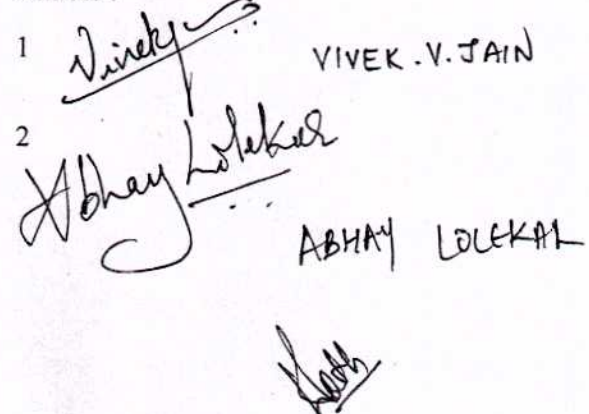 1 Vivek VIVEK.V.JAIN
2 Abhay Lolekar
ABHAY LOLEKAR